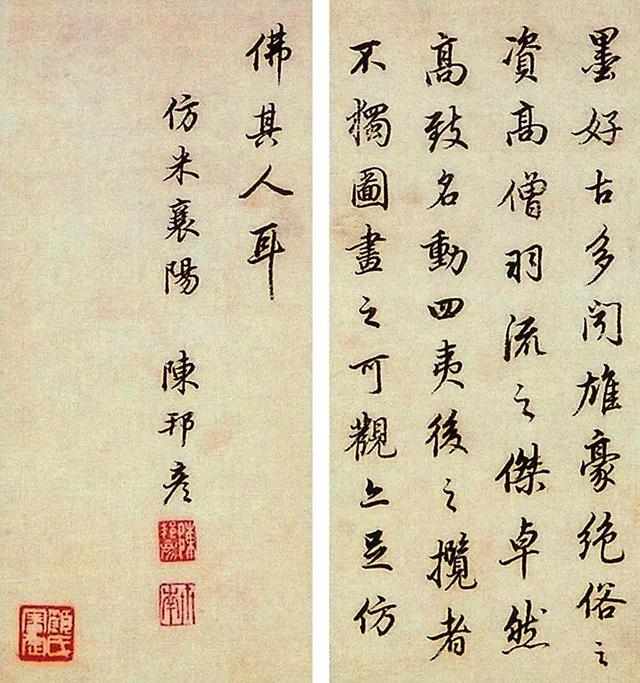 墨好古多闻雄豪绝俗之
資高僧羽流之傑卓然
高致名動四夷後之攬者
不獨圖畫之可觀亦足仿
佛其人耳
仿米襄陽　陳邦彦
陳邦彦